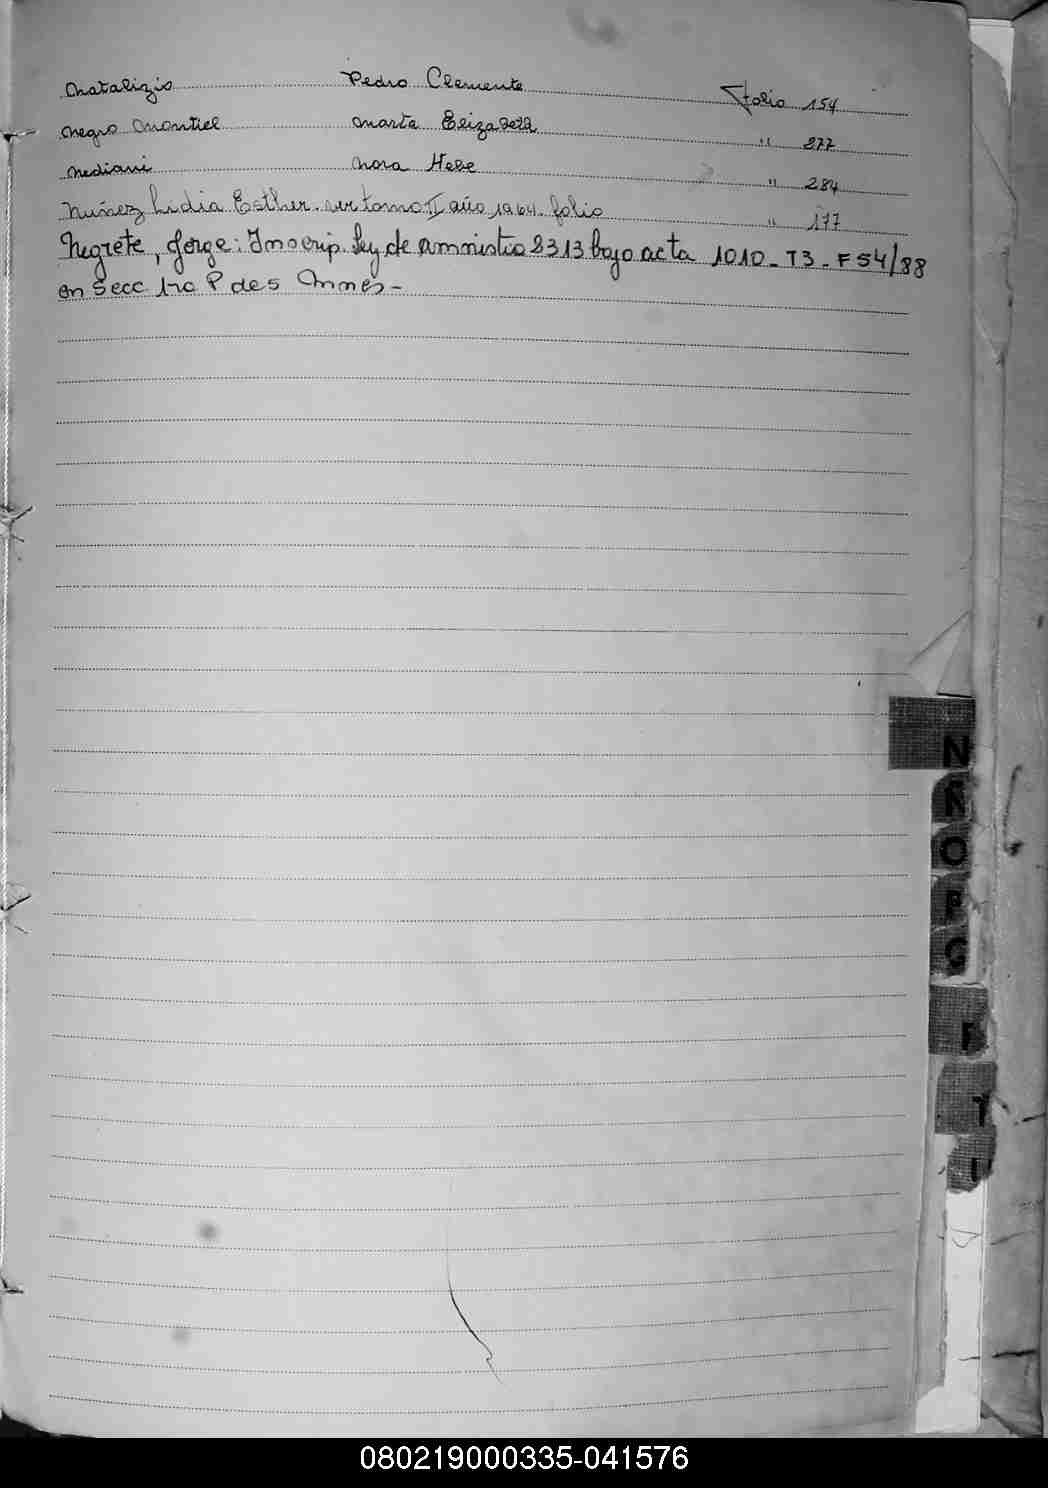 Natalizio Pedro Clemente Folio 154
Negro Montiel Marta Elizabeth " 277
Nediani Nora Hebe " 284
Nuñez Lidia Esther. ver tomo II año 1964. folio " 177
Negrete, Jorge: Inscrip. Ley de amnistia 2313 bajo acta 1010 - T3 - F 54/88
en Secc 1ra P des
N
Ñ
O
P
Q
R
T
U
080219000335-041576